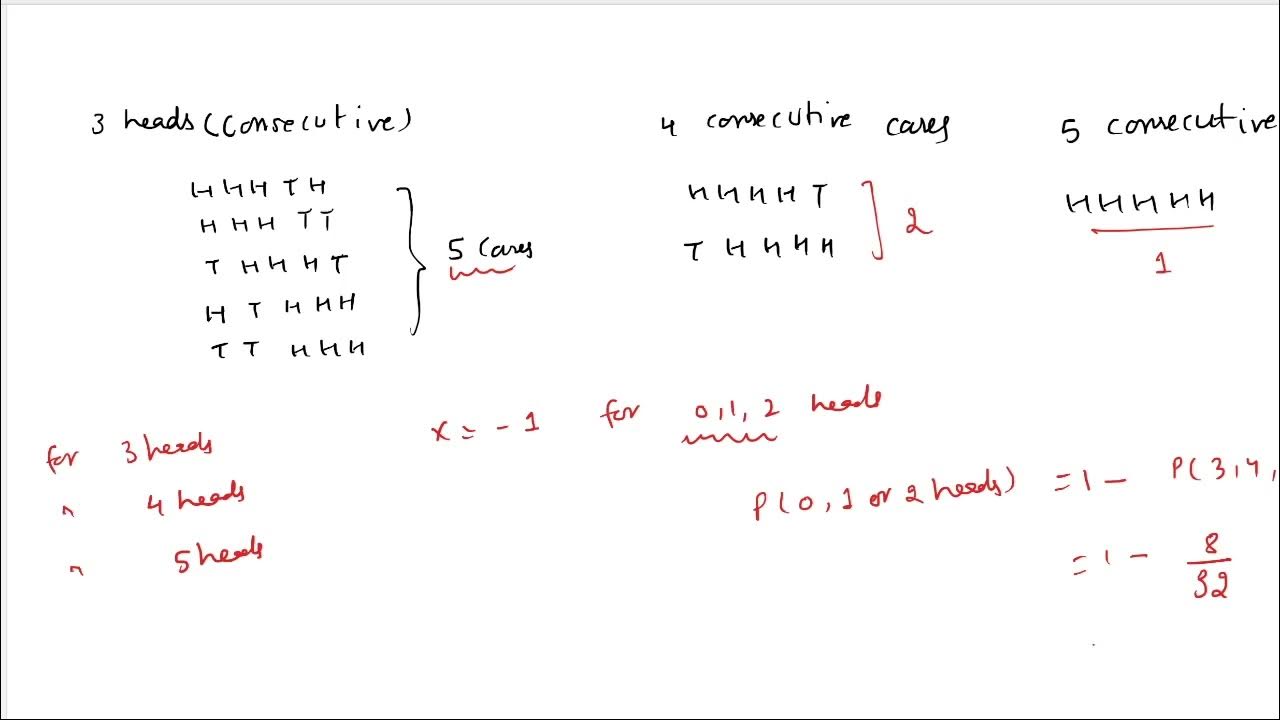 3 heads (consecutive)
HHHTH
HHHTT
THHHT
HTHHH
TTHHH
5 cases
4 consecutive cases
HHHHT
THHHH
2
5 consecutive
HHHHH
1
for 3 heads
" 4 heads
" 5 heads
x = - 1 for 0, 1, 2 heads
P(0, 1 or 2 heads) = 1 - P(3, 4,
= 1 - 8/32